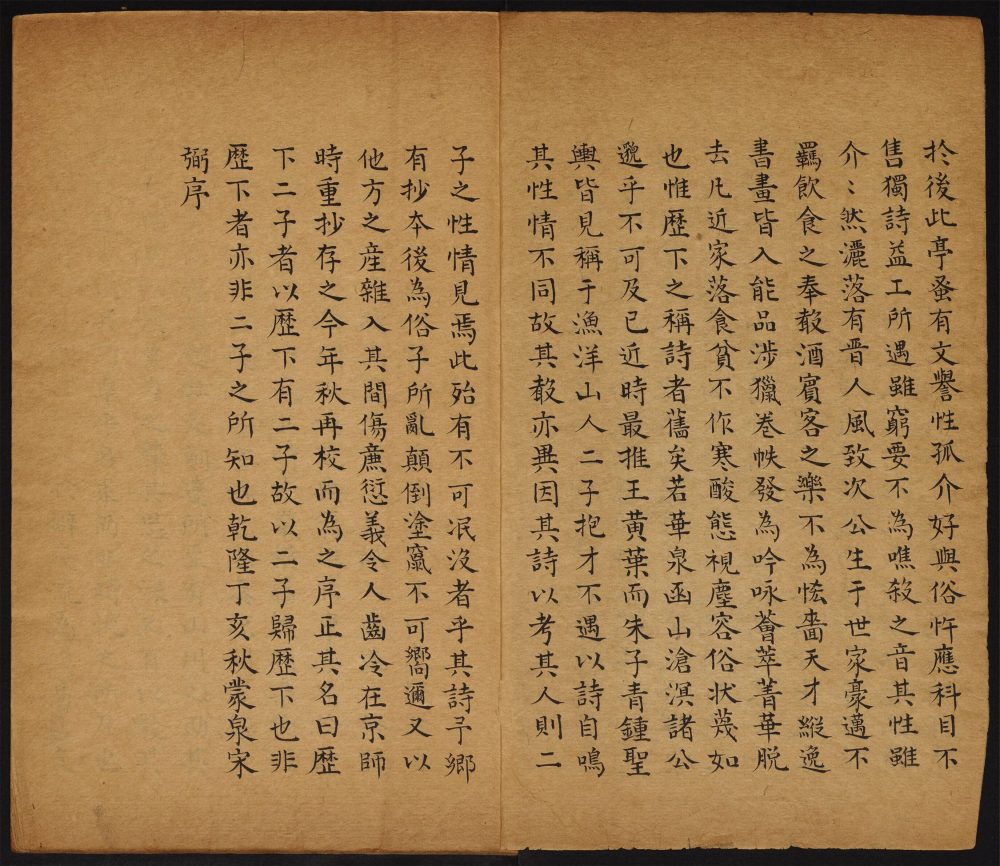 扵後此亭蚤有文譽性孤介好與俗忤應科目不
售獨詩益工所遇雖窮要不為噍殺之音其性雖
介〻然灑落有晋人風致次公生于世家豪邁不
羈飲食之奉㪅酒賓客之樂不為恡嗇天才縱逸
書畫皆入能品涉獵卷帙發為吟咏薈萃菁華脱
去凡近家落食貧不作寒酸態視塵容俗状蔑如
也惟歷下之稱詩者舊矣若華泉函山滄溟諸公
邈乎不可及已近時最推王黃葉而朱子青鍾聖
輿皆見稱于漁洋山人二子抱才不遇以詩自鳴
其性情不同故其㪅亦異因其詩以考其人則二
子之性情見焉此殆有不可冺沒者乎其詩予鄉
有抄夲後為俗子所亂顛倒塗竄不可嚮邇又以
他方之産雜入其間傷亷愆義令人齒冷在京師
時重抄存之今年秋再校而為之序正其名曰歷
下二子者以歷下有二子故以二子歸歷下也非
歷下者亦非二子之所知也乾隆丁亥秋蒙泉宋
弼序